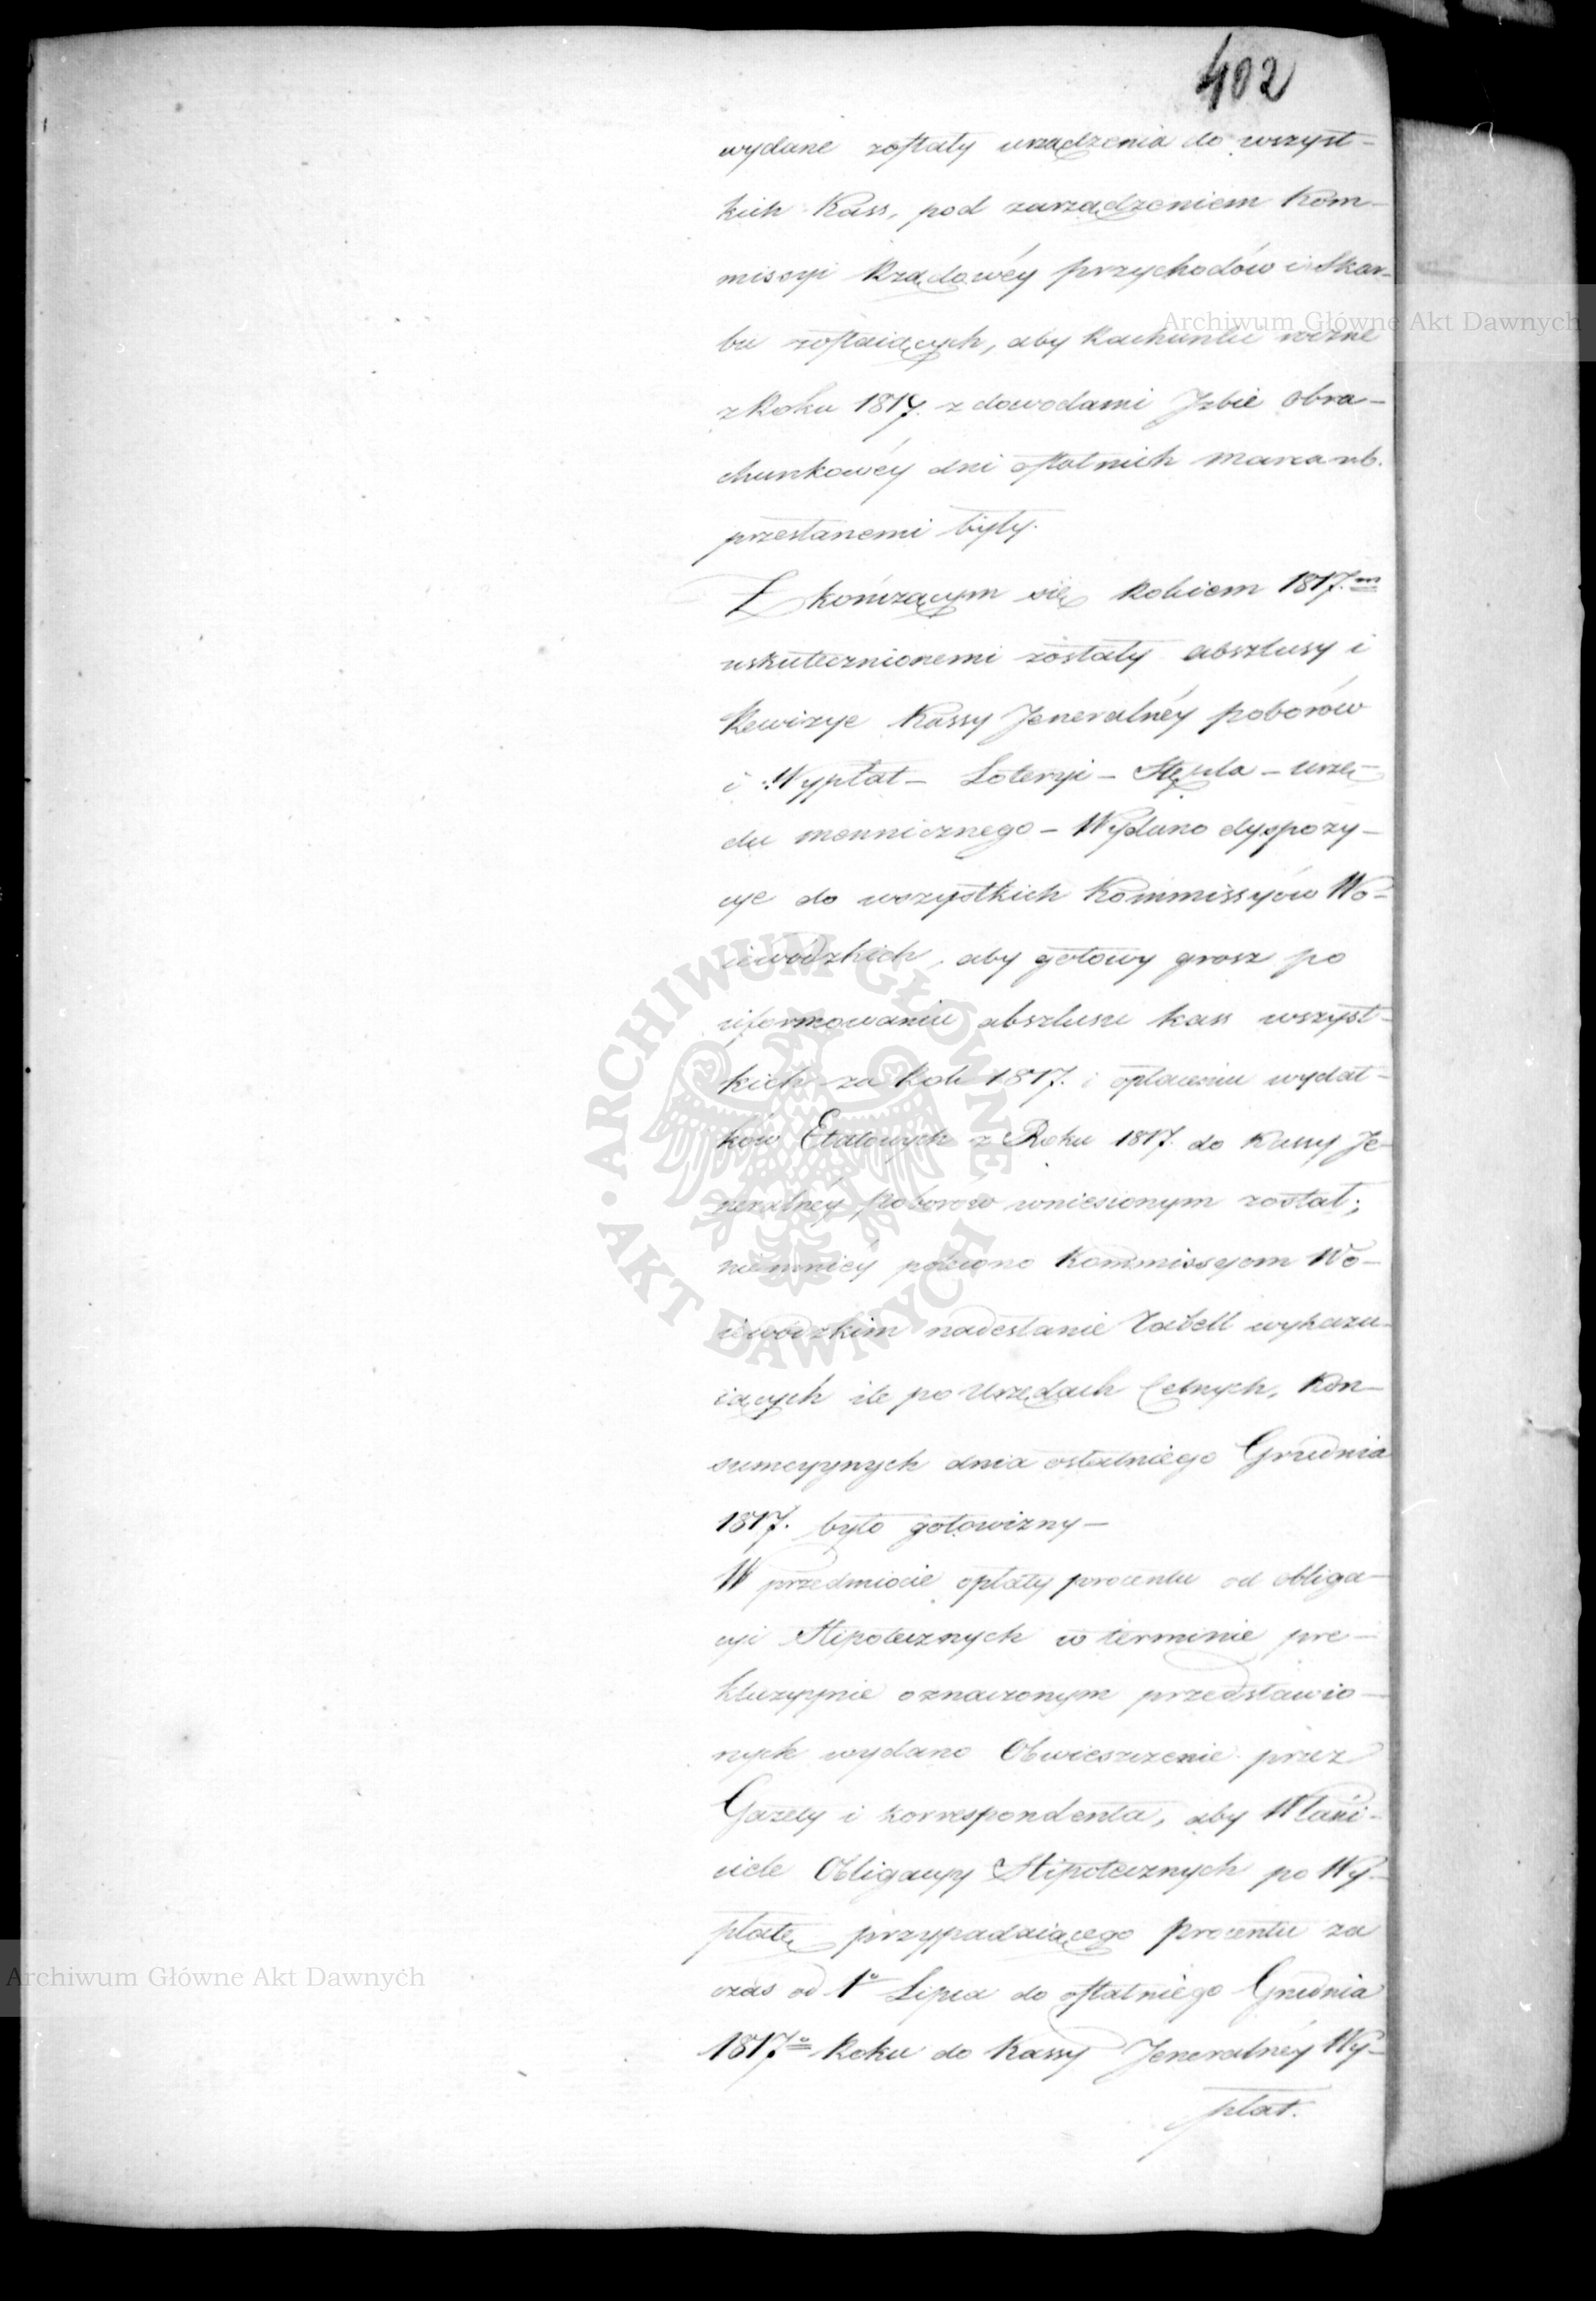 402
wydane zostały urządzenia do wszyst-
kich Kass, pod zarządzeniem Kom-
missyi Rządowéy przychodów i Skar-
bu zostaiących, aby Rachunki roczne
z Roku 1817. z dowodami Jzbie obra-
chunkowéy dni ostatnich marca rb.
przesłanemi były.
Z kończącym się Rokiem 1817.m
uskutecznionemi zostały abszlusy i
Rewizye Kassy Jeneralnéy poborów
i Wypłat - Loteryi - Stępla - urzę-
du mennicznego - Wydano dyspozy-
cye do wszystkich Kommissyów Wo-
iewódzkich, aby gotowy grosz po
uformowaniu abszlusu kass wszyst-
kich za Rok 1817. i opłaceniu wydat-
ków Etatowych z Roku 1817. do Kassy Je-
neralnéy poborów wniesionym został;
niemniéy polecono Kommissyom Wo-
iewódzkim nadesłanie Tabell wykazu-
iących ile po Urzędach Celnych, Kon-
sumcyynych dnia ostatniego Grudnia
1817. było gotowizny -
W przedmiocie opłaty procentu od obliga-
cyi Hipotecznych w terminie pre-
kluzyynie oznaczonym przedstawio-
nych wydano Obwieszczenie przez
Gazety i korrespondenta, aby Właści-
ciele Obligacyy Hipotecznych po Wy-
płatę przypadaiącego procentu za
czas od 1o Lipca do ostatniego Grudnia
1817o Roku do Kassy Jeneralnéy Wy-
płat.
Archiwum Główne Akt Dawnych
Archiwum Główne Akt Dawnych
ARCHIWUM GŁÓWNE • AKT DAWNYCH